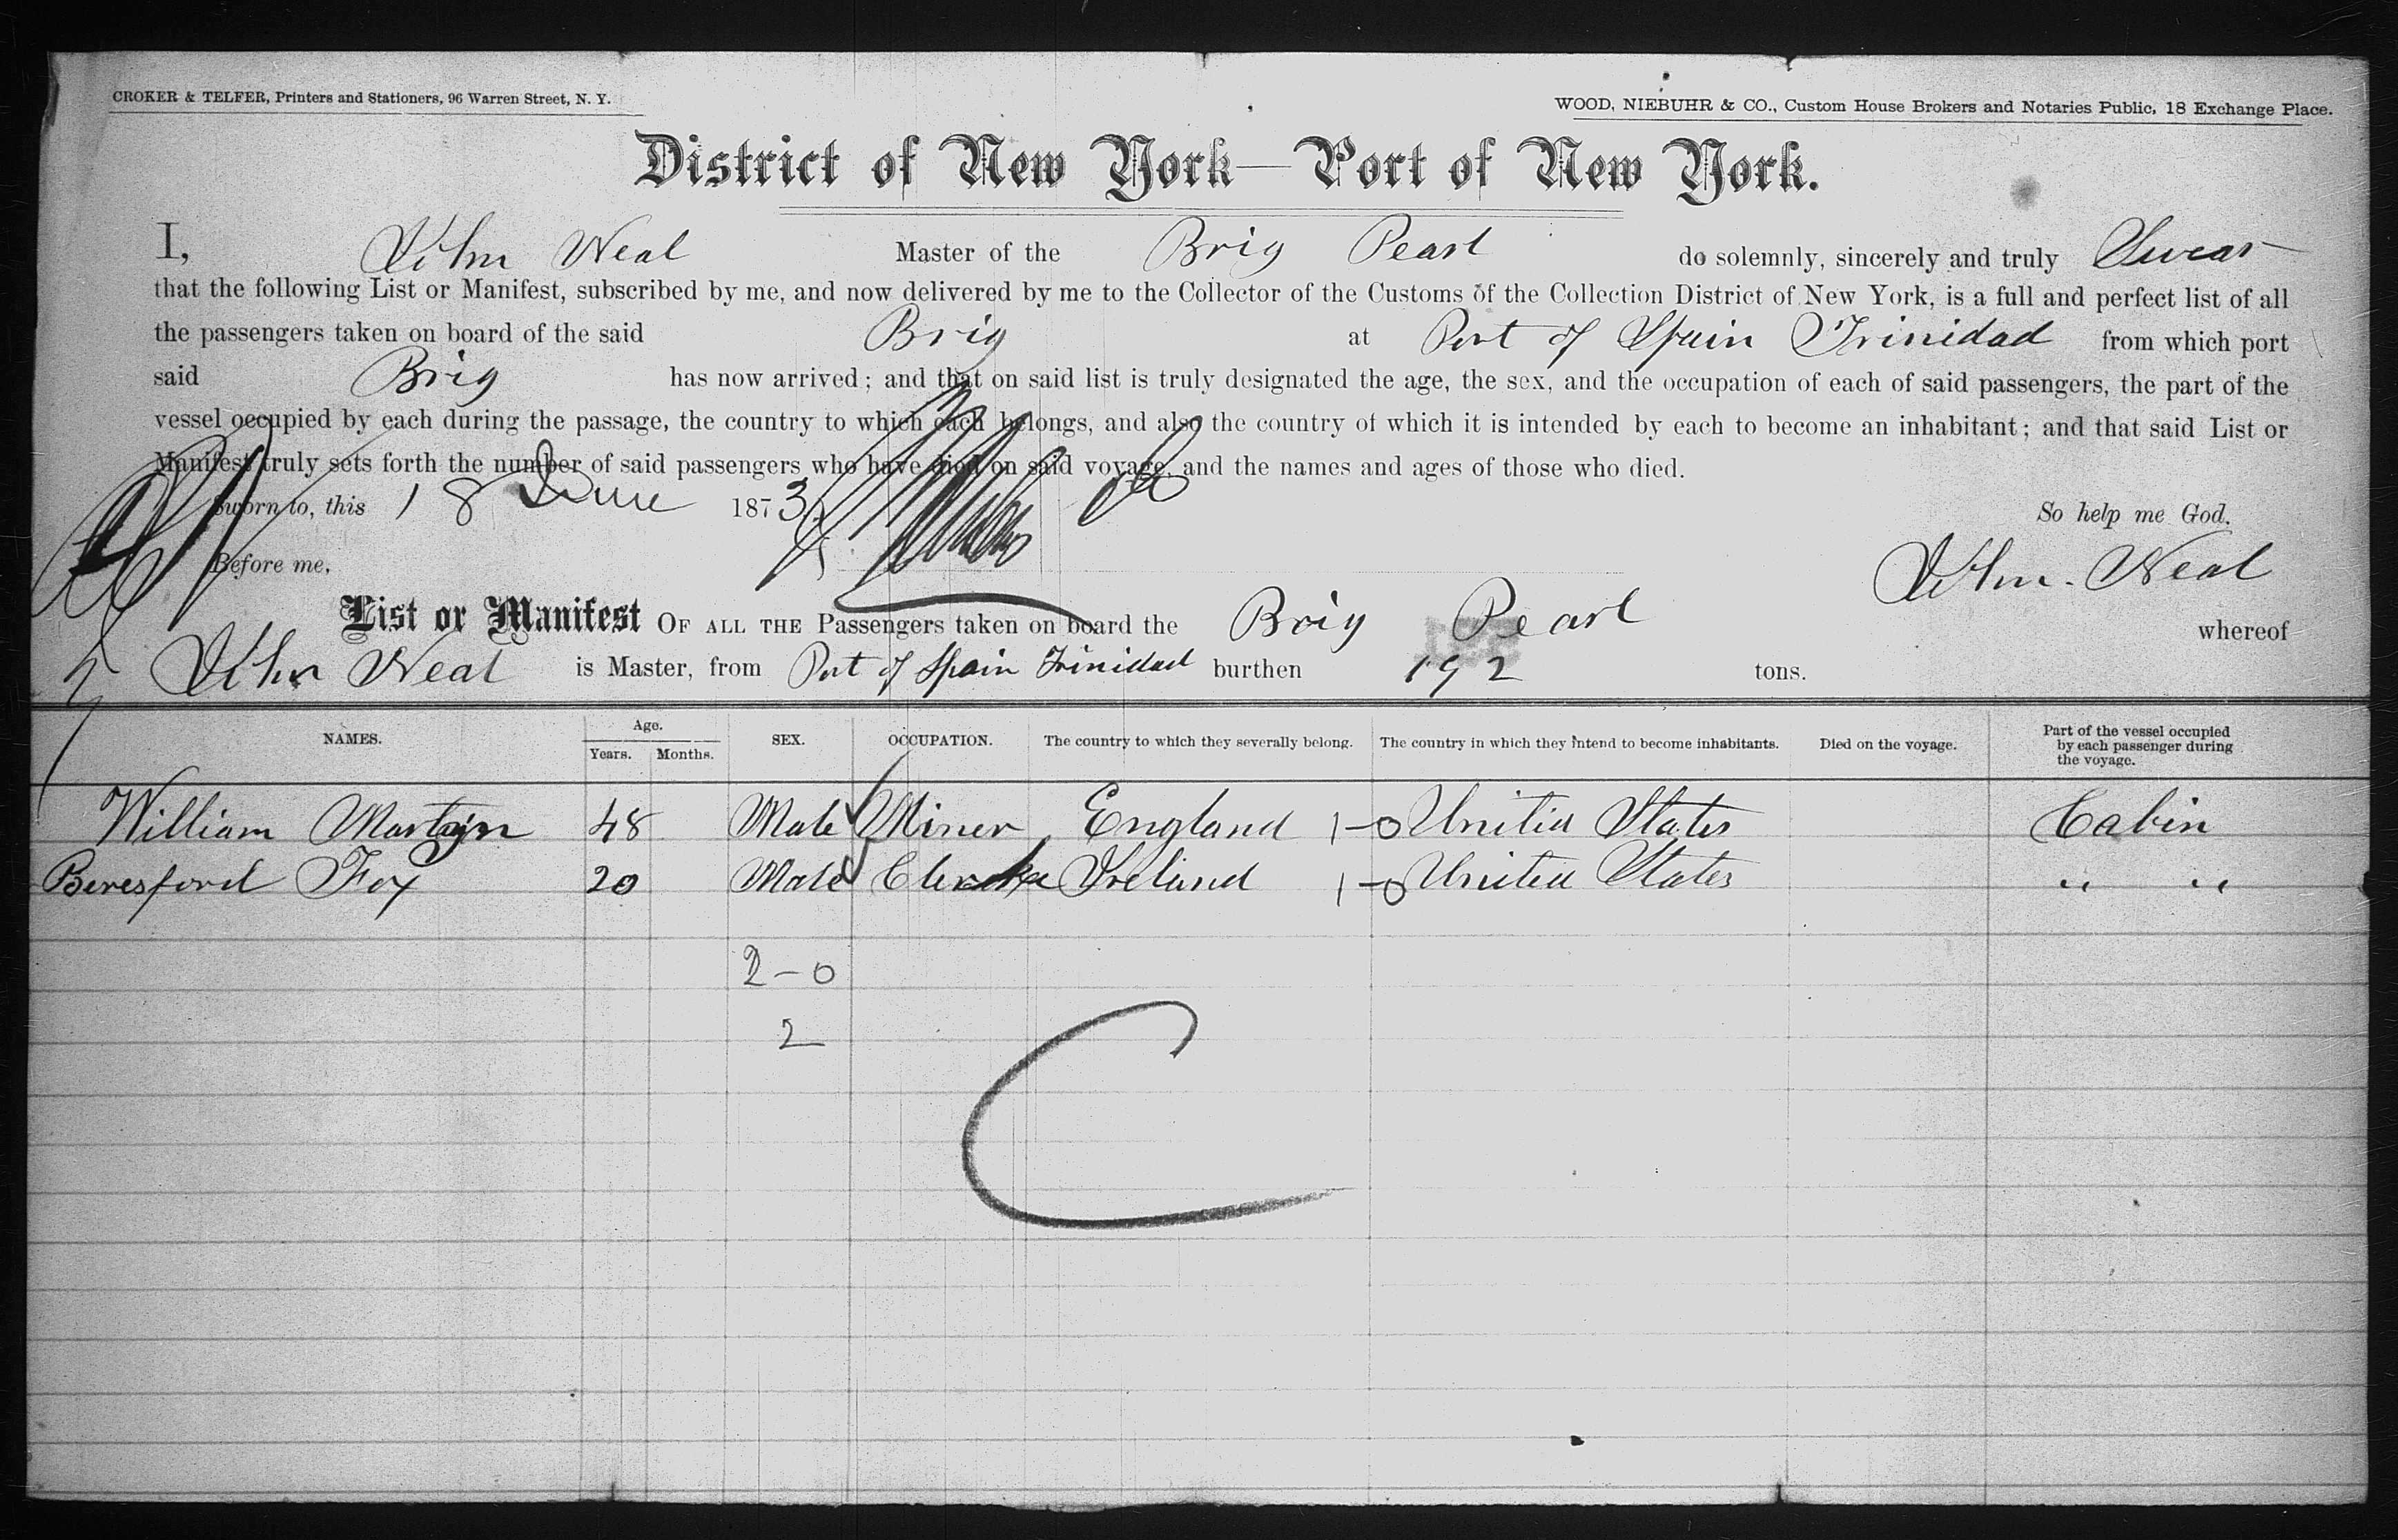 CROKER & TELFER, Printers and Stationers, 96 Warren Street, N. Y.
WOOD, NIEBUHR & CO., Custom House Brokers and Notaries Public, 18 Exchange Place.
District of New York—Port of New York.
I, John Neal Master of the Brig Pearl do solemnly, sincerely and truly Swear
that the following List or Manifest, subscribed by me, and now delivered by me to the Collector of the Customs of the Collection District of New York, is a full and perfect list of all
the passengers taken on board of the said Brig at Port of Spain Trinidad from which port
said Brig has now arrived; and that on said list is truly designated the age, the sex, and the occupation of each of said passengers, the part of the
vessel occupied by each during the passage, the country to which each belongs, and also the country of which it is intended by each to become an inhabitant; and that said List or
Manifest truly sets forth the number of said passengers who have died on said voyage, and the names and ages of those who died.
Sworn to, this 18 June 1873 So help me God.
Before me, John Neal
List or Manifest OF ALL THE Passengers taken on board the Brig Pearl whereof
John Neal is Master, from Port of Spain Trinidad burthen 192 tons.
NAMES. Age. Years. Months. SEX. OCCUPATION. The country to which they severally belong. The country in which they intend to become inhabitants. Died on the voyage. Part of the vessel occupied by each passenger during the voyage.
William Martyn 48 Male Miner England 1-0 United States Cabin
Beresford Fox 20 Male Clerk Ireland 1-0 United States " "
2-0
2
C